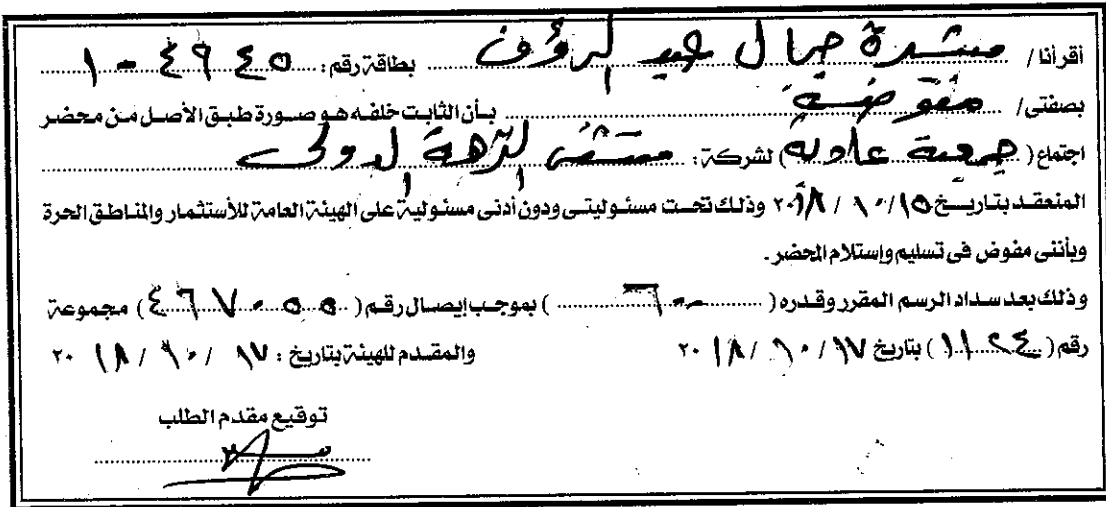 أقر أنا / مشيرة جمال عبد الرؤف بطاقة رقم: ٤٩٤٥ - ١
بصفتى / مفوضة بأن الثابت خلفه هو صورة طبق الأصل من محضر
اجتماع ( جمعية عادية ) لشركة: مستشفى النزهة الدولى
المنعقد بتاريخ ١٥ / ١٠ / ٢٠١٨ وذلك تحت مسئوليتى ودون أدنى مسئولية على الهيئة العامة للأستثمار والمناطق الحرة
وبأننى مفوض فى تسليم وإستلام المحضر.
وذلك بعد سداد الرسم المقرر وقدره ( ) بموجب إيصال رقم ( ٤٦٧٠٥٥ ) مجموعة
رقم ( ١١٢٤ ) بتاريخ ١٧ / ١٠ / ٢٠١٨ والمقدم للهيئة بتاريخ : ١٧ / ١٠ / ٢٠١٨
توقيع مقدم الطلب